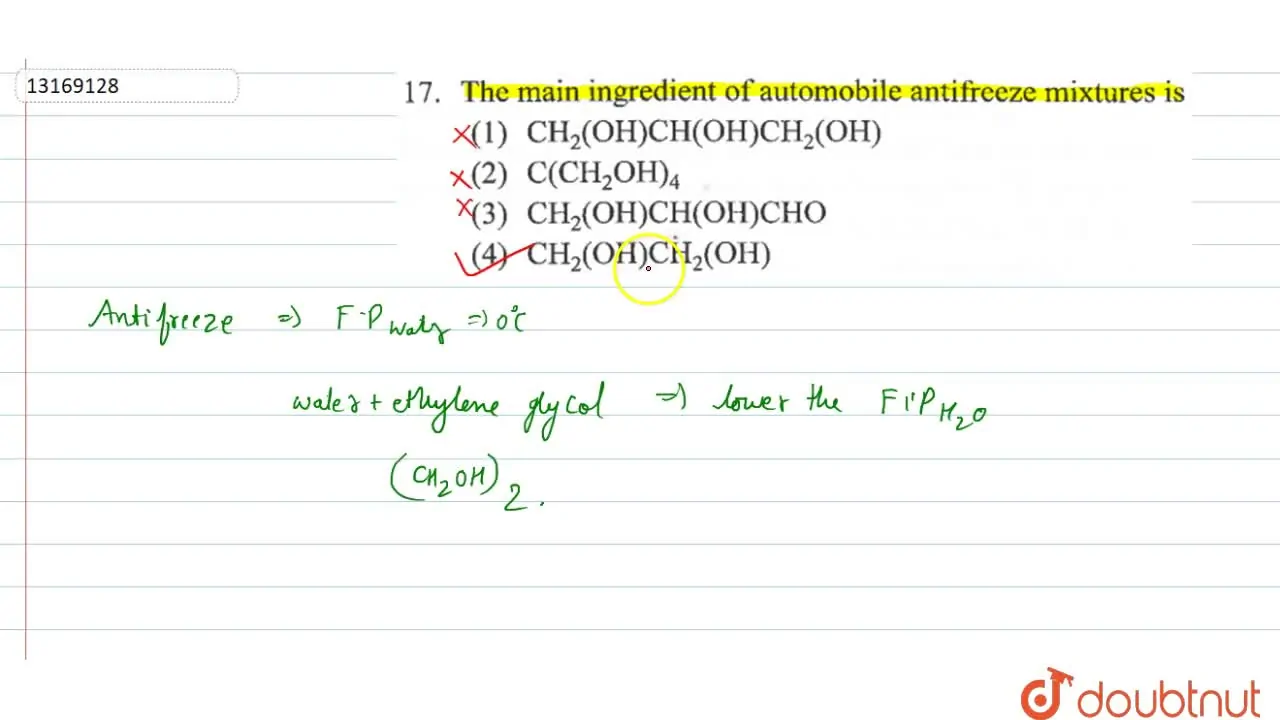 13169128
17. The main ingredient of automobile antifreeze mixtures is
×(1) CH₂(OH)CH(OH)CH₂(OH)
×(2) C(CH₂OH)₄
×(3) CH₂(OH)CH(OH)CHO
✓(4) CH₂(OH)CH₂(OH)
Antifreeze ⇒ F·P water ⇒ 0°C
water + ethylene glycol ⇒ lower the F·P H₂O
(CH₂OH)₂.
doubtnut